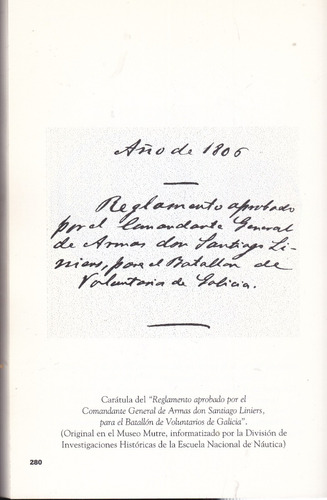 Año de 1806
Reglamento aprobado
por el Comandante General
de Armas don Santiago Li-
niers, para el Batallon de
Voluntaria de Galicia.
Carátula del "Reglamento aprobado por el
Comandante General de Armas don Santiago Liniers,
para el Batallón de Voluntarios de Galicia".
(Original en el Museo Mutre, informatizado por la División de
Investigaciones Históricas de la Escuela Nacional de Náutica)
280